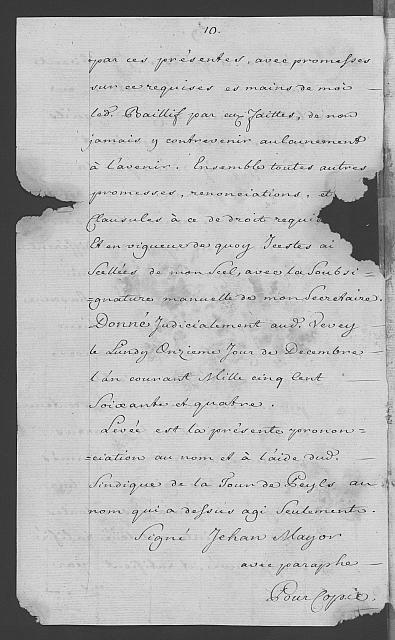 10.
par ces présentes, avec promesses
sur ce requises es mains de moi
led. Baillif par eux faittes, de non
jamais y contrevenir aulcunement
à l'avenir. Ensemble toutes autres
promesses, renonciations, et
Clausules à ce de droit requi
Et en vigueur de quoy Jcestes ai
Scellées de mon Scel, avec la Soubsi=
=gnature manuelle de mon Secretaire.
Donné Judicialement aud. Vevey
le Lundy Onzieme Jour de Decembre
l'an courant Mille cinq Cent
Soixante et quatre.
Levée est la présente pronon=
=ciation au nom et à l'aide dud.
Sindique de la Tour de Peyls au
nom qui a dessus agi Seulement.
Signé Jehan Mayor
avec paraphe
Pour Copie.